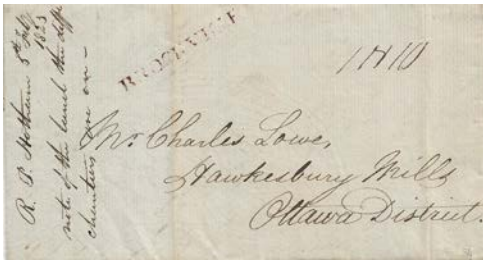 R. P. Hotham 5th July
1853
note of the land the diff
chanters are on —
BROCKVILLE
1N10
Mr. Charles Lowe,
Hawkesbury Mills
Ottawa District.